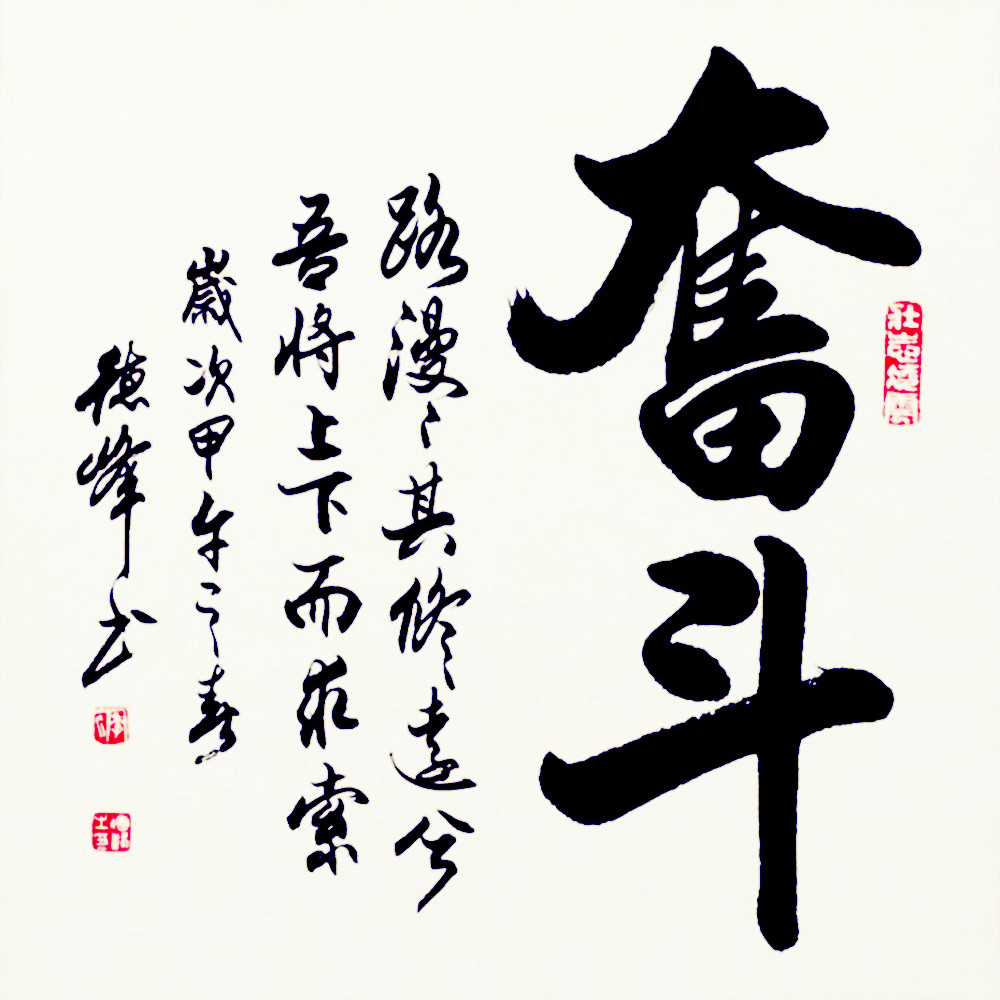 奮斗
路漫々其修遠兮
吾将上下而求索
歲次甲午之春
德峰书